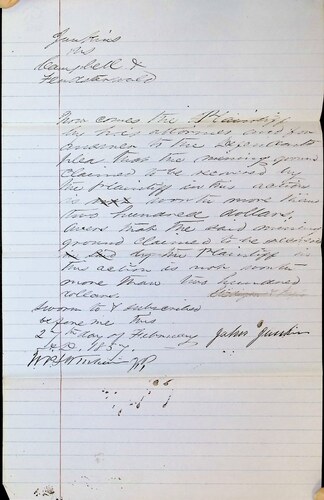 Junkins
vs
Campbell &
Fenderswold
Now comes the Plaintiff
by his attornies and for
answer to the Defendants
plea that the mining ground
claimed to be recovered by
the Plaintiff in this action
is worth more than
two hundred dollars,
avers that the said mining
ground claimed to be
by the Plaintiff in
this action is not worth
more than two hundred
dollars.
Sworn to & subscribed
before me this
2nd day of February John Junkin
A.D. 1857
J.P.